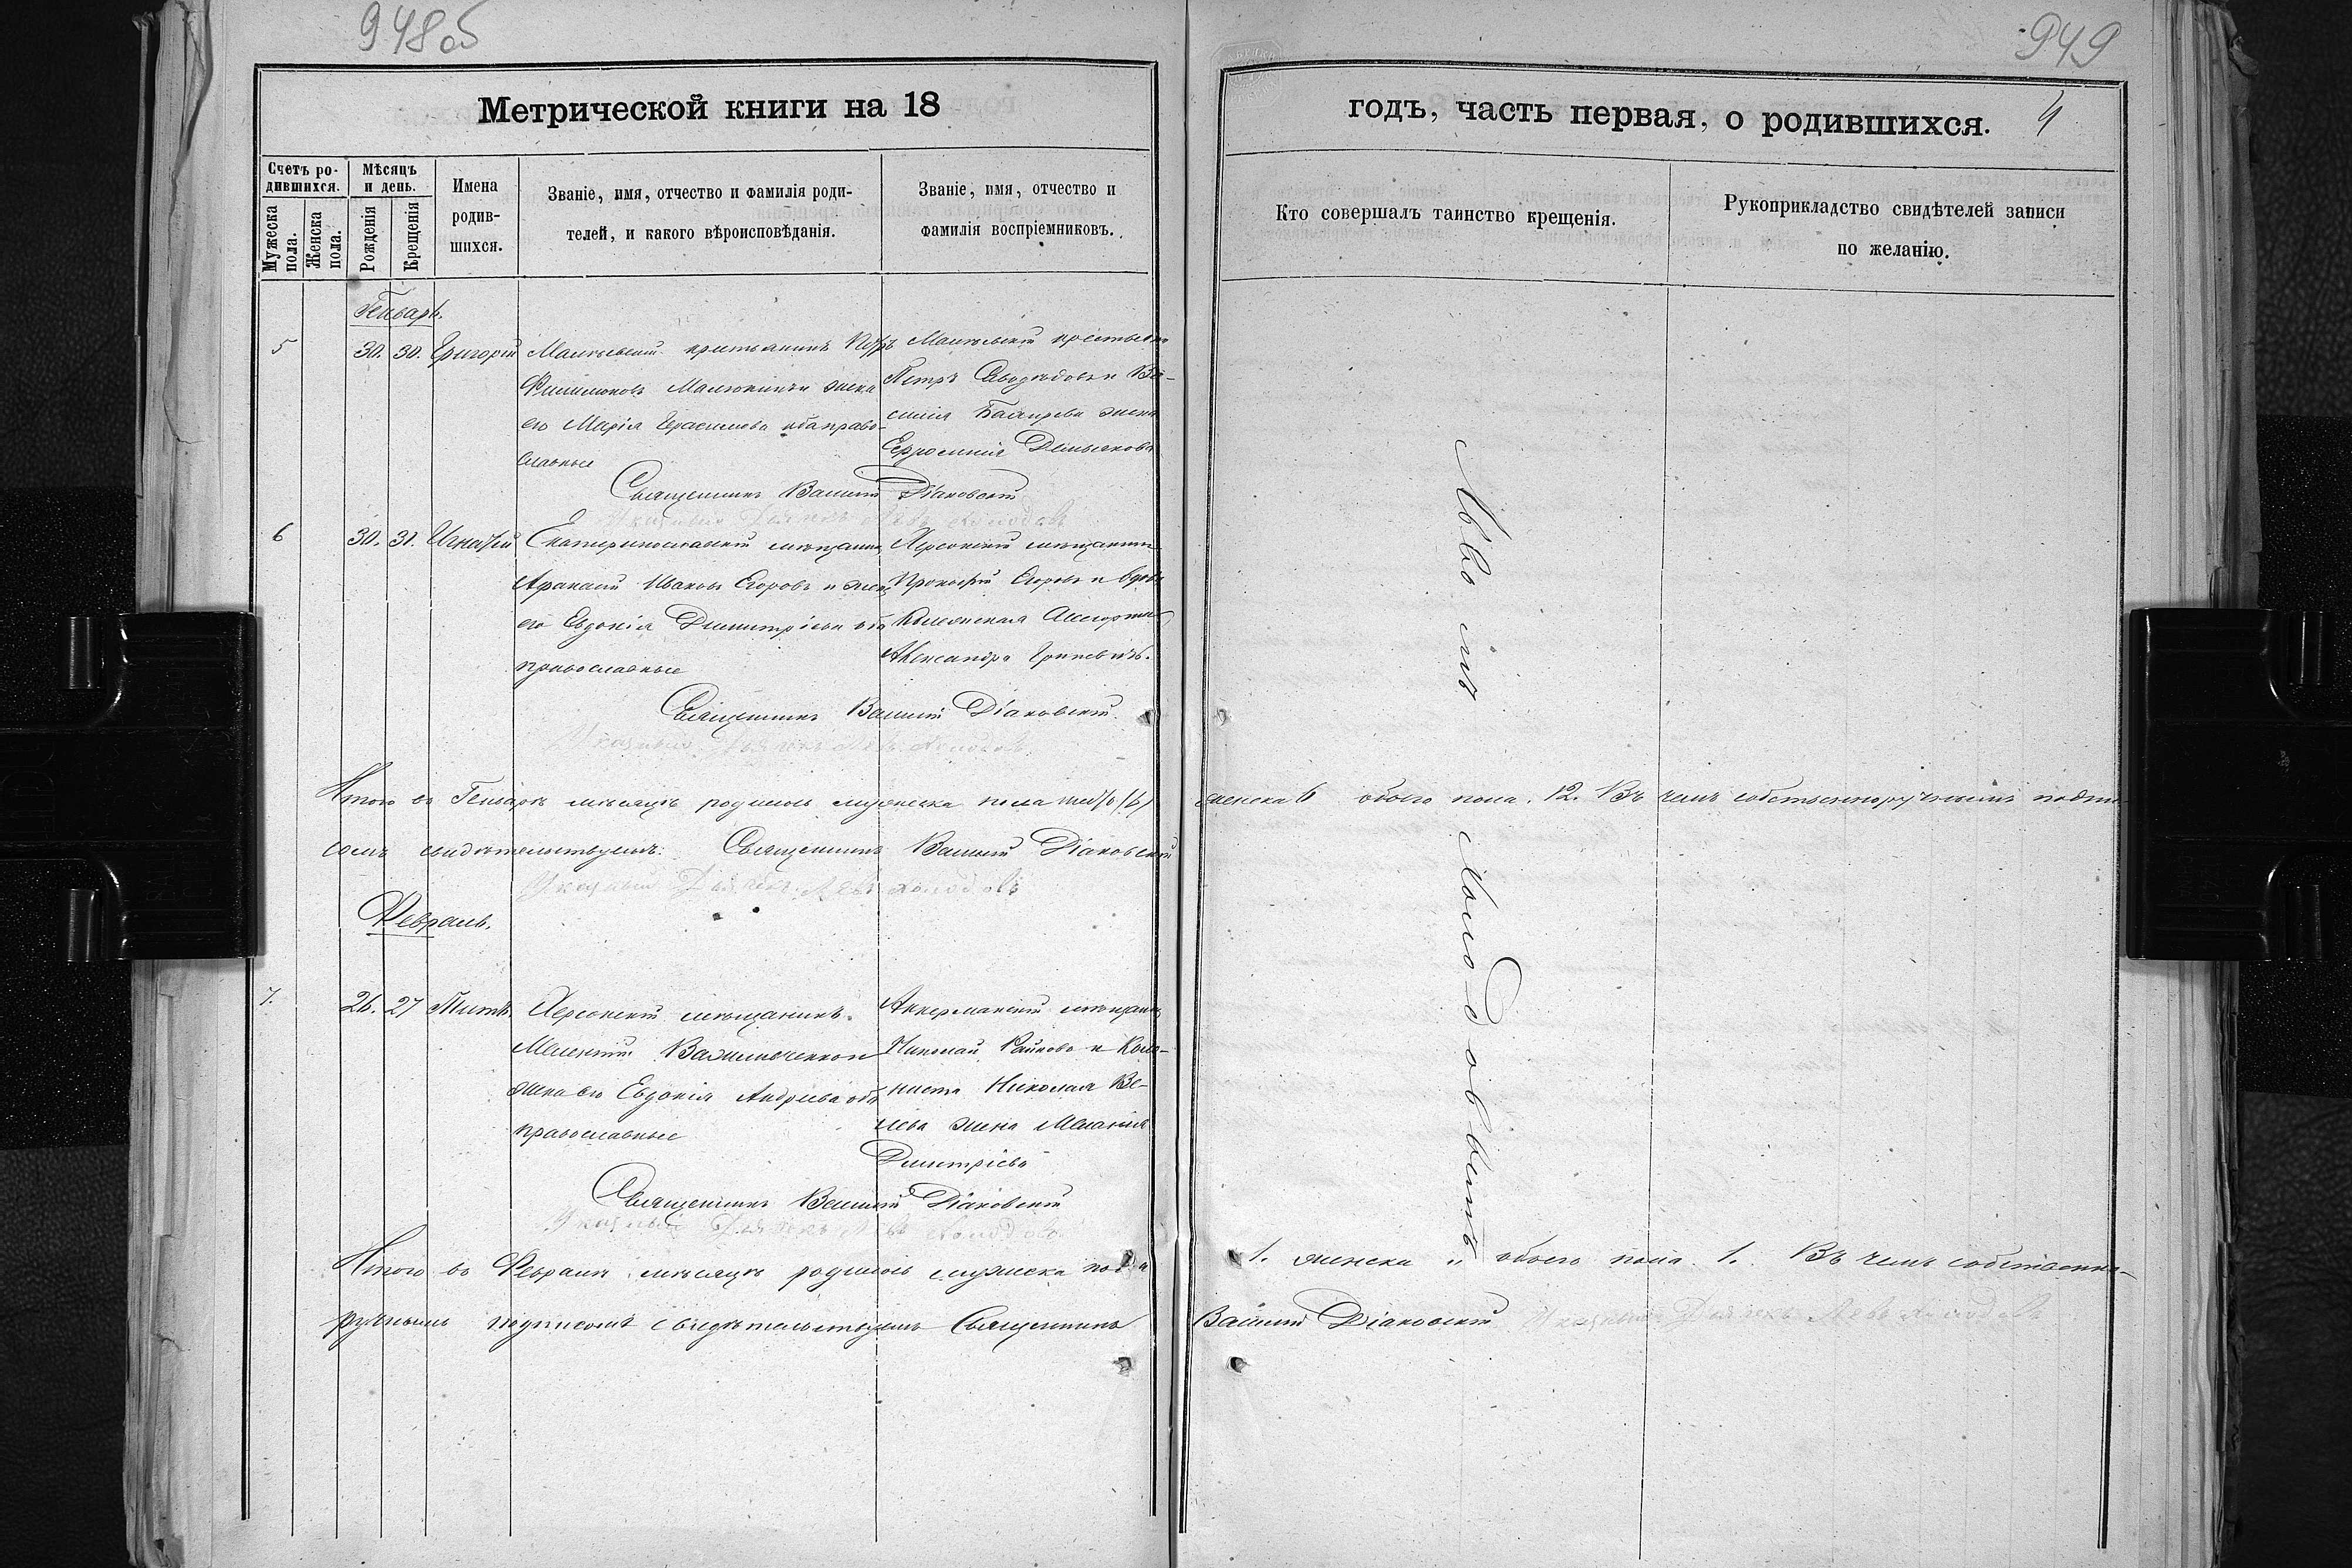 948об
949
Метрической книги на 18
годъ, часть первая, о родившихся.
4
Счетъ родившихся.
Мужеска пола.
Женска пола.
Мѣсяцъ и день.
Рожденія
Крещенія
Имена родившихся.
Званіе, имя, отчество и фамилія родителей, и какого вѣроисповѣданія.
Званіе, имя, отчество и фамилія воспріемниковъ.
Кто совершалъ таинство крещенія.
Рукоприкладство свидѣтелей записи по желанію.
Генварь.
5 30. 30. Григорій
крестьянинъ
Филимоновъ жена
его Марія Герасимова оба право-
славные
крестьянинъ
Петръ и Ва-
силія жена
Ефросинія Демьянова
Священникъ Василій Діаковскій
6 30. 31. Игнатій
Екатеринославскій мѣщанинъ
Афанасій Ивановъ Егоровъ и жена
его Евдокія Димитріева оба
православные
Херсонскій мѣщанинъ
Прокофій Егоровъ и вдова
Александра
Священникъ Василій Діаковскій.
Указный Дьячекъ Левъ Холодовъ
Итого въ Генварѣ мѣсяцѣ родилось мужеска пола шесть (6)
женска 6 обоего пола. 12. Въ чемъ собственноручнымъ подпи-
сомъ свидѣтельствуемъ: Священникъ Василій Діаковскій
Указный Дьячекъ Левъ Холодовъ
Февраль.
7. 26. 27 Титъ.
Херсонскій мѣщанинъ
Мелентій Василиченко и
жена его Евдокія Андреева оба
православные
Аккерманскій мѣщанинъ
Николай Райновъ и Коло-
ниста Николая Ве-
лева жена Меланія
Димитріева
Священникъ Василій Діаковскій
Указный Дьячекъ Левъ Холодовъ
Итого въ Февралѣ мѣсяцѣ родилось мужеска пола
1. женска „ обоего пола 1. Въ чемъ собственно-
ручнымъ подписомъ свидѣтельствуемъ Священникъ
Василій Діаковскій Указный Дьячекъ Левъ Холодовъ